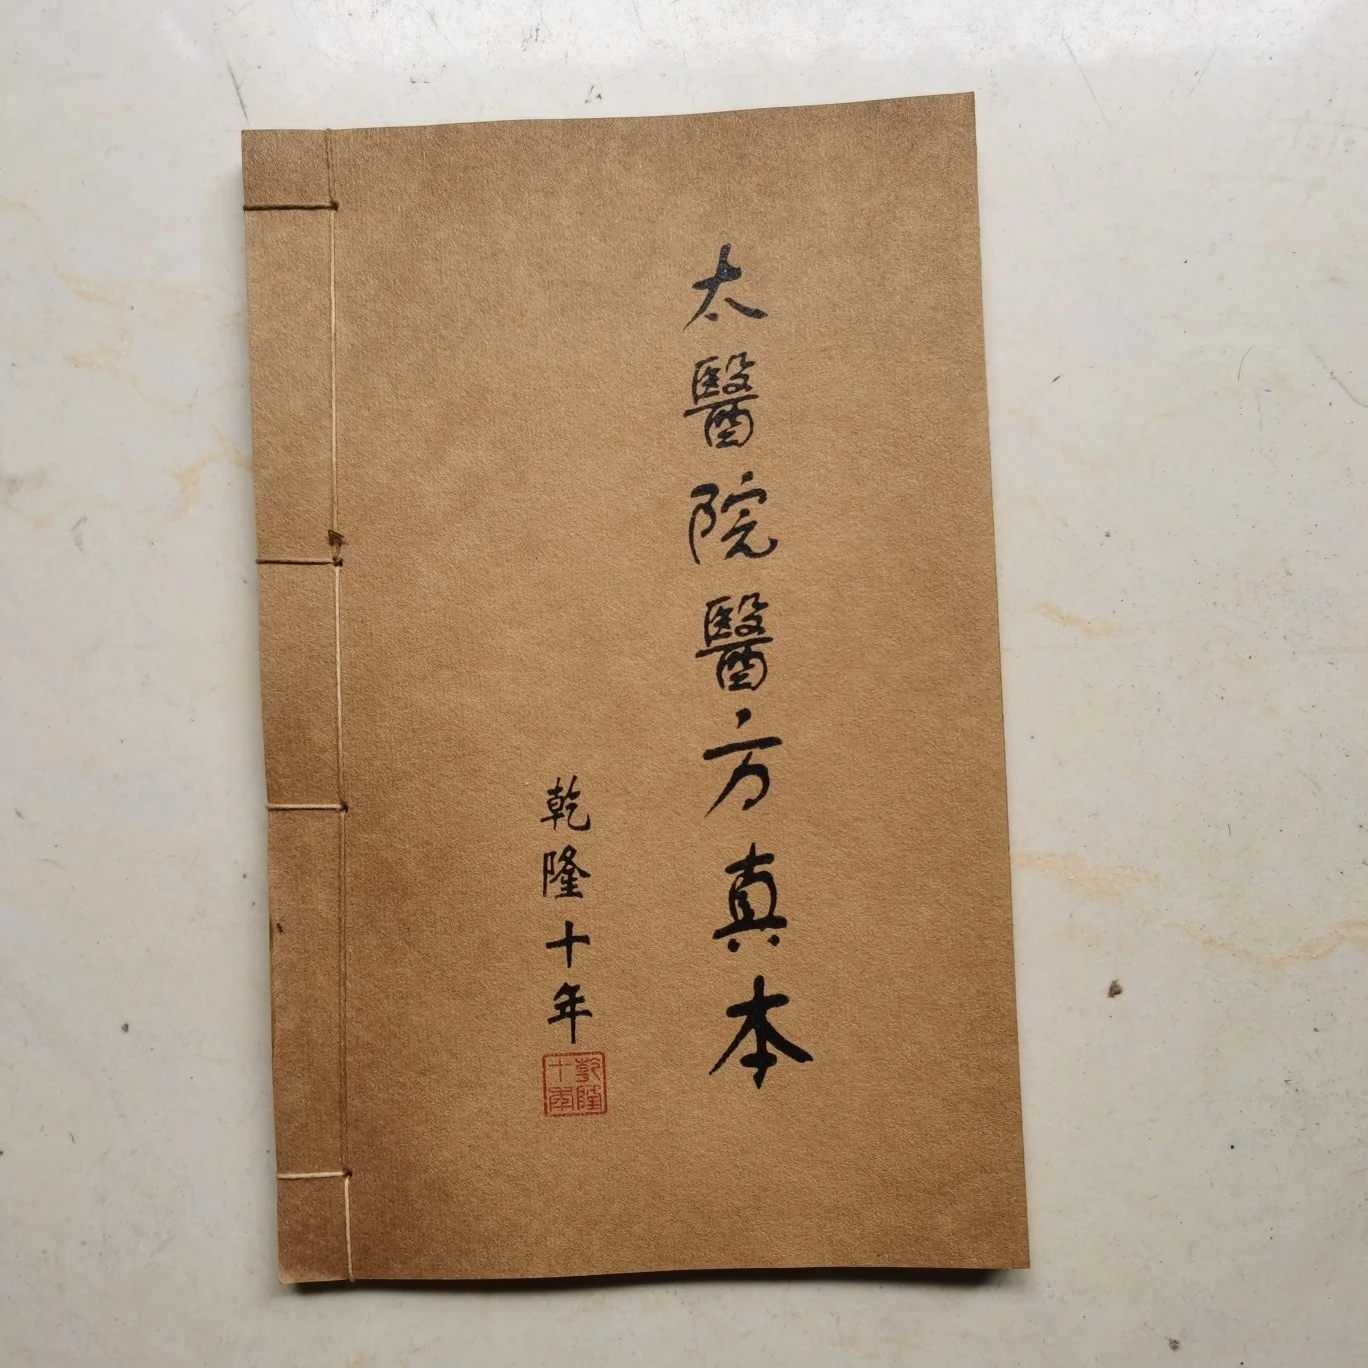 太醫院醫方真本
乾隆十年
乾隆
十年